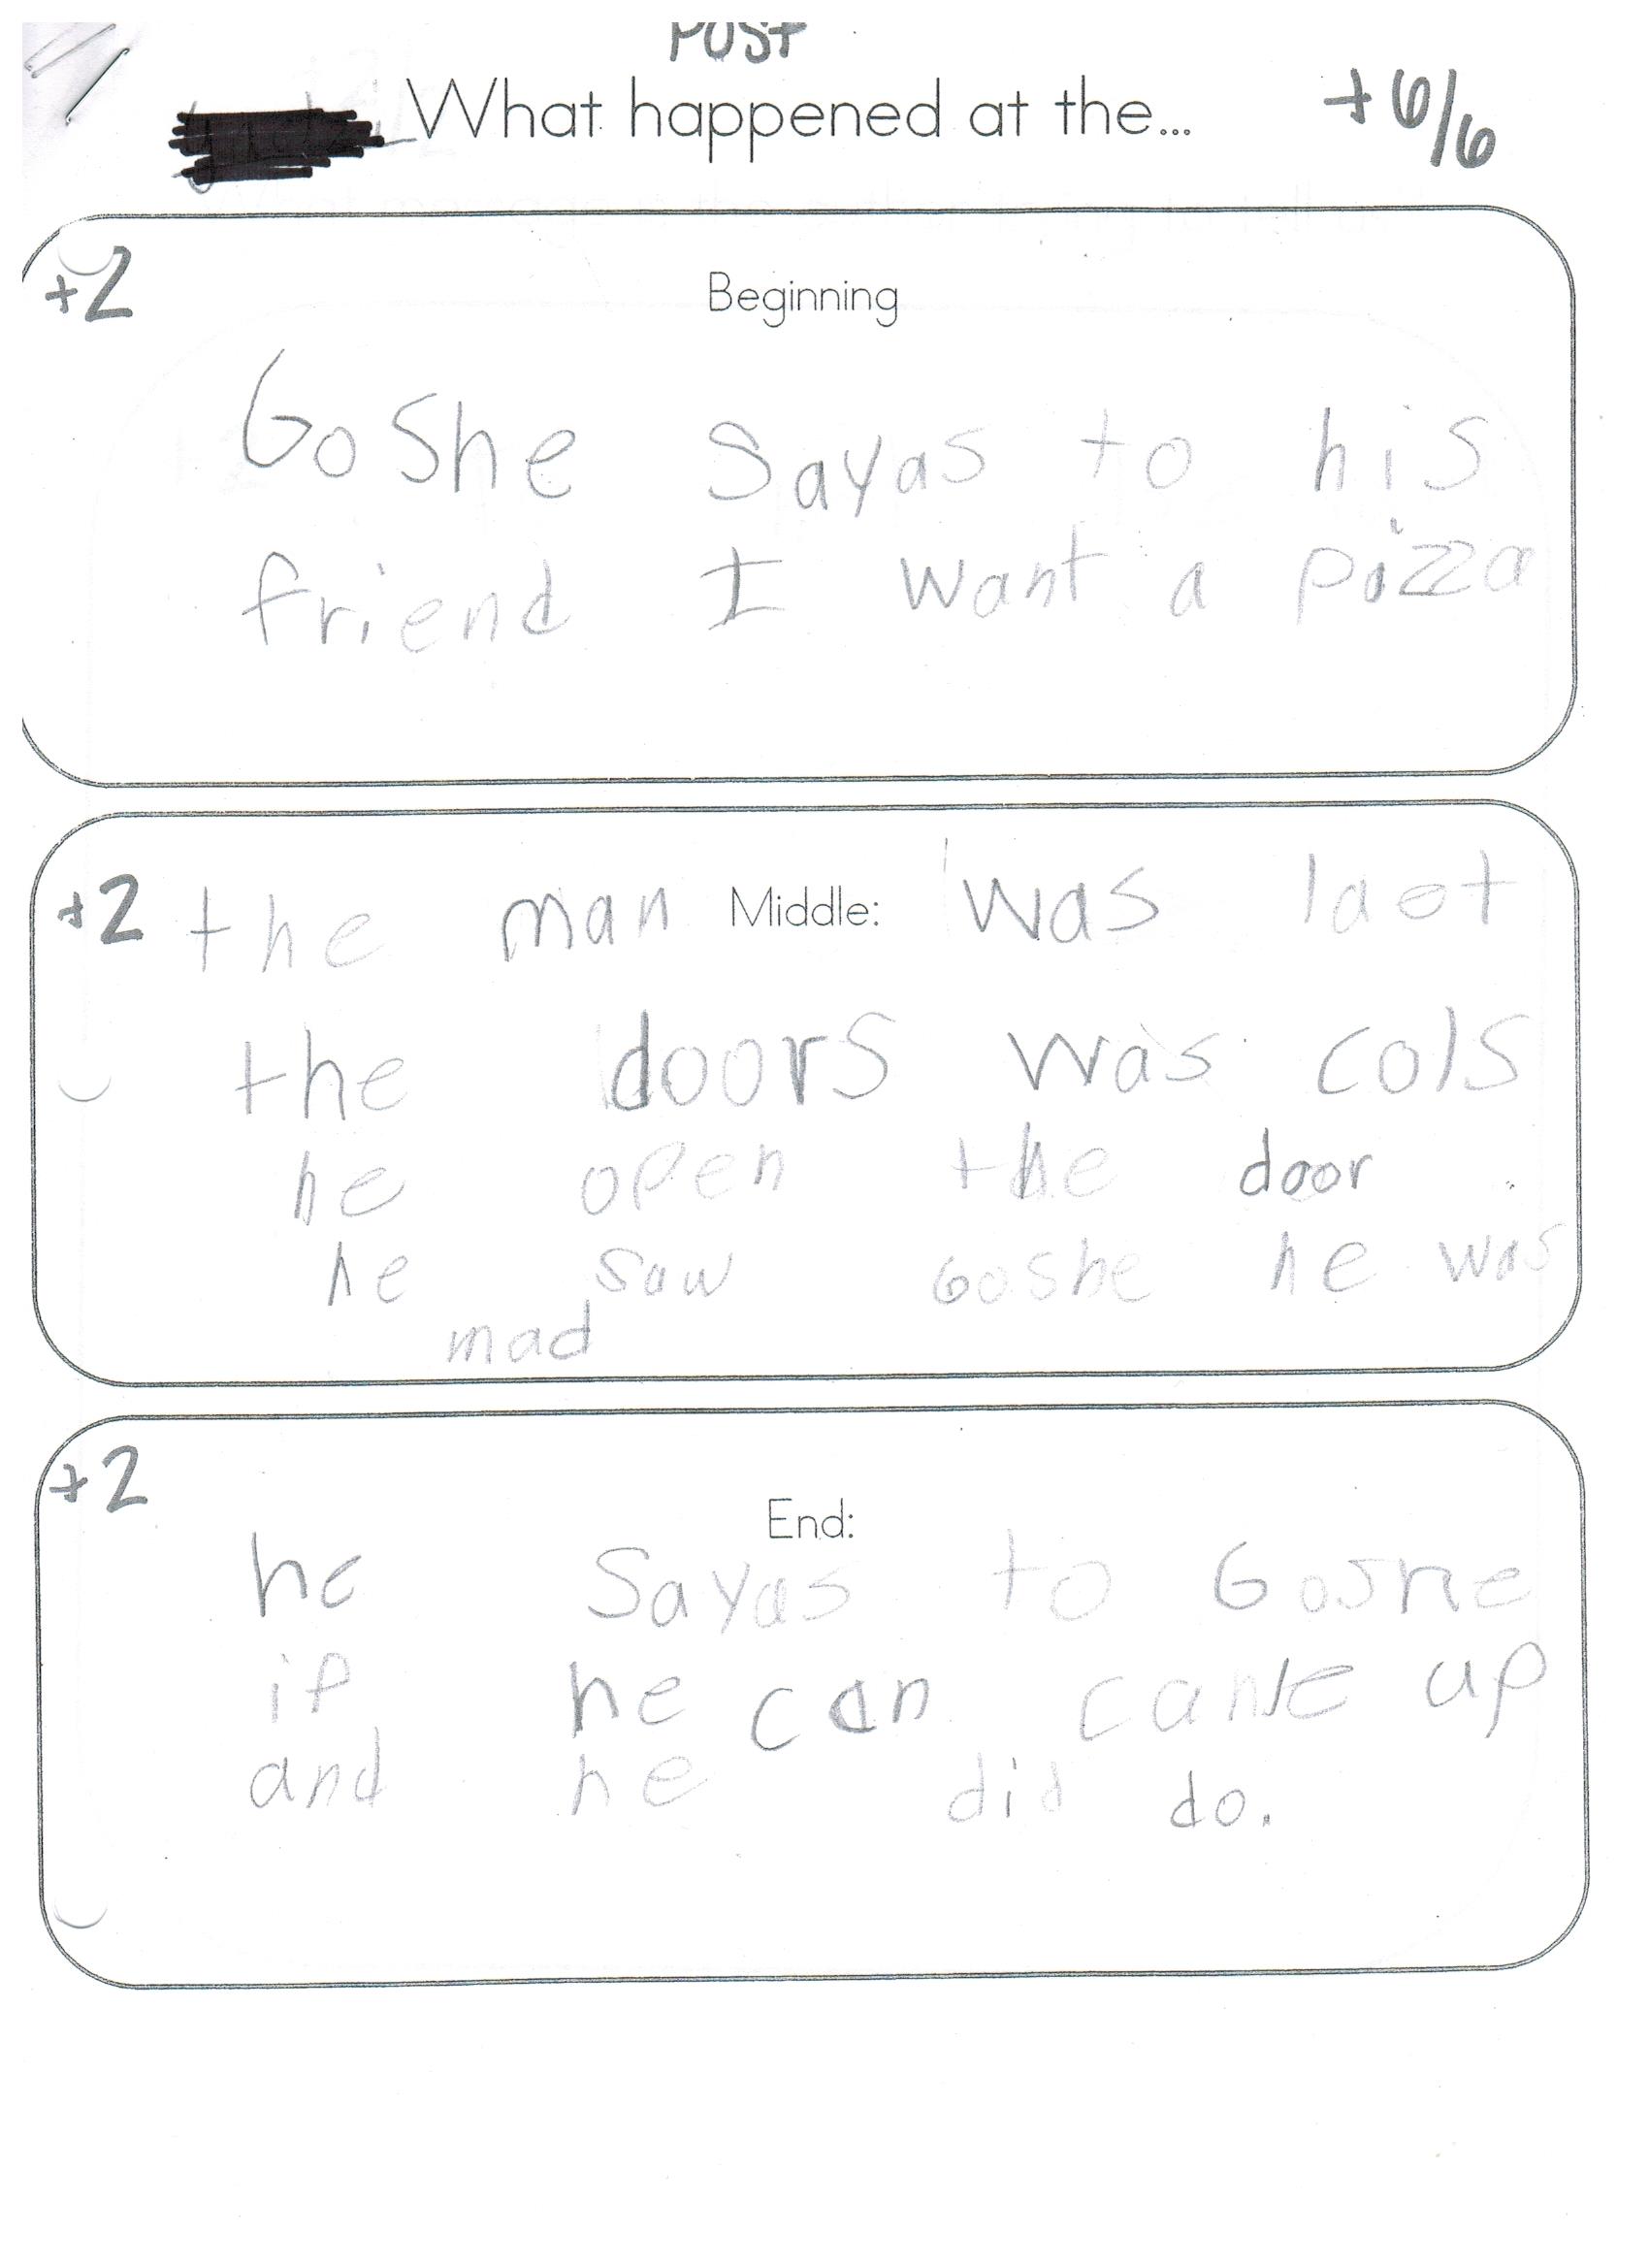 POST
What happened at the... +6/6
+2
Beginning
Goshe Sayas to his
friend I want a pizza
+2 the man Middle: was laet
the doors was cols
he open the door
he saw Goshe he was
mad
+2
End:
he Sayas to Goshe
if he can came up
and he did do.